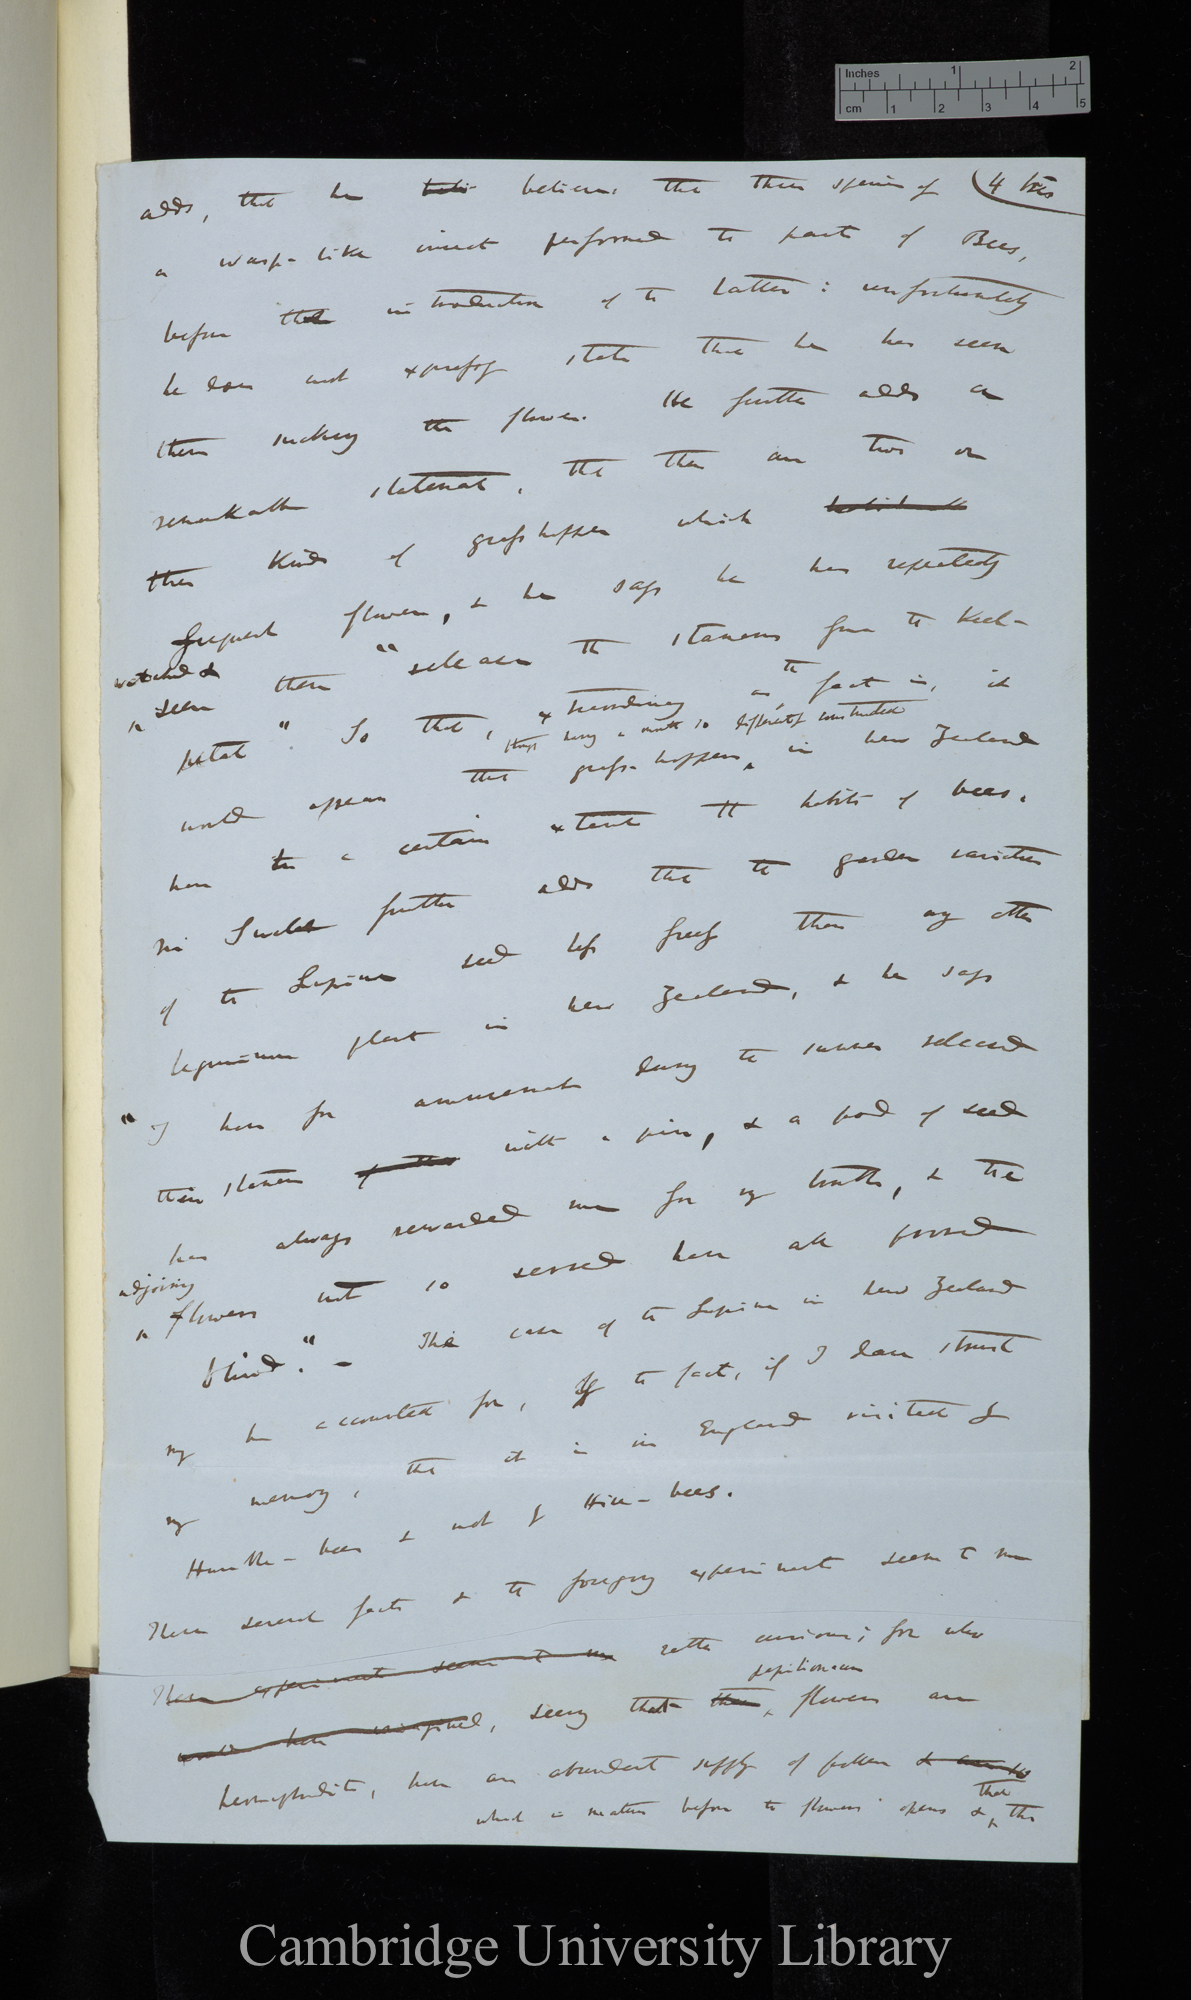 Inches 1 2
cm 1 2 3 4 5
4 bis
adds, that he beli believes that three species of
a wasp-like insect performed the part of Bees,
before the introduction of the latter: unfortunately
he does not expressly state that he has seen
them sucking the flower. He further adds a
remarkable statement, that there are two or
three kinds of grasshopper which
frequent flowers, & he says he has repeatedly
watched &
seen them "release the stamens from the keel-
petal" So that, extraordinary as the fact is, it
though having a mouth so differently constructed
would appear that grass-hoppers in New Zealand
have to a certain extent the habits of bees.
Mr Swale further adds that the garden varieties
of the Lupine seed less freely than any other
leguminous plant in New Zealand, & he says
"I have for amusement during the summer released
the stamens with a pin, & a pod of seed
has always rewarded me for my trouble, & the
adjoining
flowers not so served have all proved
blind." – The case of the Lupine in New Zealand
may be accounted for, by the fact, if I dare trust
my memory, that it is in England visited by
Humble-bees & not by Hive-bees.
These several facts & the foregoing experiments seem to me
These experiments seem to me rather curious; for who
would have imagined, seeing that these papilionaceous flowers are
hermaphrodite, have an abundant supply of pollen &
which is mature before the flower opens & that the
Cambridge University Library